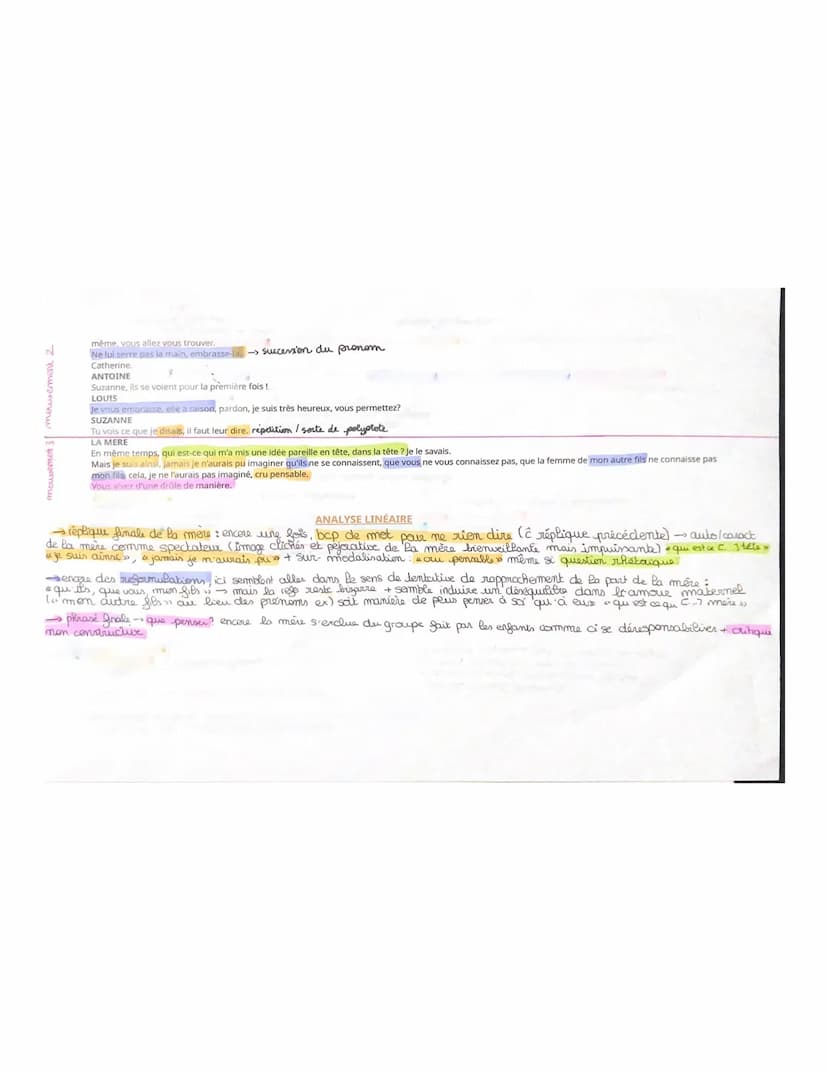 même, vous allez vous trouver.
Ne lui serre pas la main, embrasse-la. → sucession du pronom
Catherine.
ANTOINE
Suzanne, ils se voient pour la première fois !
LOUIS
Je vous embrasse, elle a raison, pardon, je suis très heureux, vous permettez?
SUZANNE
Tu vois ce que je disais, il faut leur dire. répétition / sorte de polyptote
mouvement 2
mouvement 3
LA MERE
En même temps, qui est-ce qui m'a mis une idée pareille en tête, dans la tête ? Je le savais.
Mais je suis ainsi, jamais je n'aurais pu imaginer qu'ils ne se connaissent, que vous ne vous connaissez pas, que la femme de mon autre fils ne connaisse pas
mon fils cela, je ne l'aurais pas imaginé, cru pensable.
Vous vivez d'une drôle de manière.
ANALYSE LINÉAIRE
→ réplique finale de la mère : encore une fois, bcp de mot pour ne rien dire (ĉ réplique précédente) → auto/caract
de la mère comme spectateur (image clichés et péjorative de la mère bienveillante mais impuissante) « qui est ce C. tête »
« je suis ainsi », « jamais je n'aurais pu » + sur-modalisation. « cru pensable » même si question rhétorique
→ encore des reformulations, ici semblent aller dans le sens de tentative de rapprochement de la part de la mère :
« qu'ils, que vous, mon fils » → mais la reste bizarre + semble induire un déséquilibre dans l'amour maternel
(« mon autre fils » au lieu des prénoms ex) soit manière de plus penser à soi qu'à eux « qui est ce qui
→ phrase finale → que penser? encore la mère s'exclue du groupe fait par les enfants comme ci se déresponsabiliser + critique
non constructive